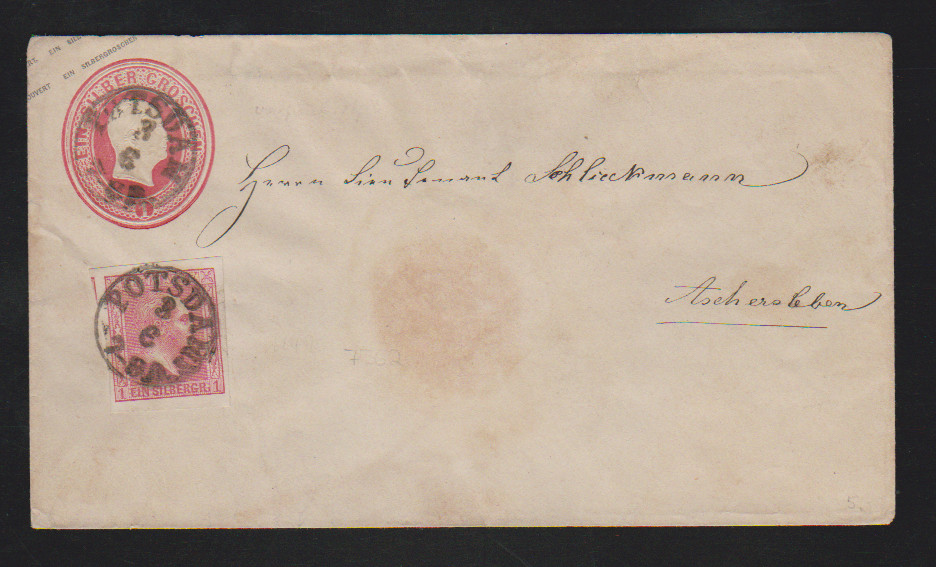 EIN SILBERGROSCHEN
COUVERT EIN SILBERGROSCHEN
EIN SILBER GROSCHEN
POTSDAM
3
6
Herrn Lieutenant Schlieckmann
Aschersleben
POTSDAM
3
6
1 EIN SILBERGR. 1